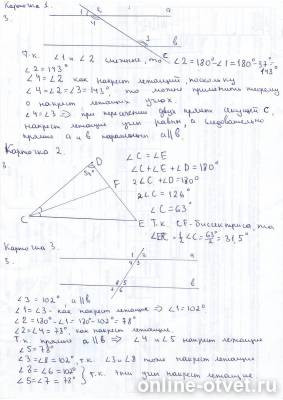 Карточка 1.
3.
1 2 a
4
3 b
c
Т.к. ∠1 и ∠2 смежные, то ∠2=180°-∠1=180°-37°=
∠2=143° 143°
∠4=∠2 как накрест лежащий, поскольку
∠4=∠2=∠3=143°, то можно применить теорему
о накрест лежащих углах.
∠4=∠3 ⇒ при пересечении двух прямых секущей C,
накрест лежащие углы равны, а следовательно
прямые a и b параллельны a∥b.
Карточка 2.
3.
D
54°
F
C
E
∠C=∠E
∠C+∠E+∠D=180°
2∠C+∠D=180°
2∠C=126°
∠C=63°
Т.к. CF-биссектриса, то
=½∠C=63°/2=31,5°
Карточка 3.
3.
1 2 a
4 3
5 6 b
8 7
∠3=102°, a∥b
∠1=∠3-как накрест лежащие ⇒ ∠1=102°
∠2=180°-∠1=180°-102°=78°
∠2=∠4=78°, как накрест лежащие.
Т.к. прямые a∥b ⇒ ∠4 и ∠5 накрест лежащие
∠5=78°
∠3=∠8=102°, т.к. ∠3 и ∠8 тоже накрест лежащие
∠8=∠6=102°
∠5=∠7=78° } т.к. эти углы накрест лежащие
online-otvet.ru